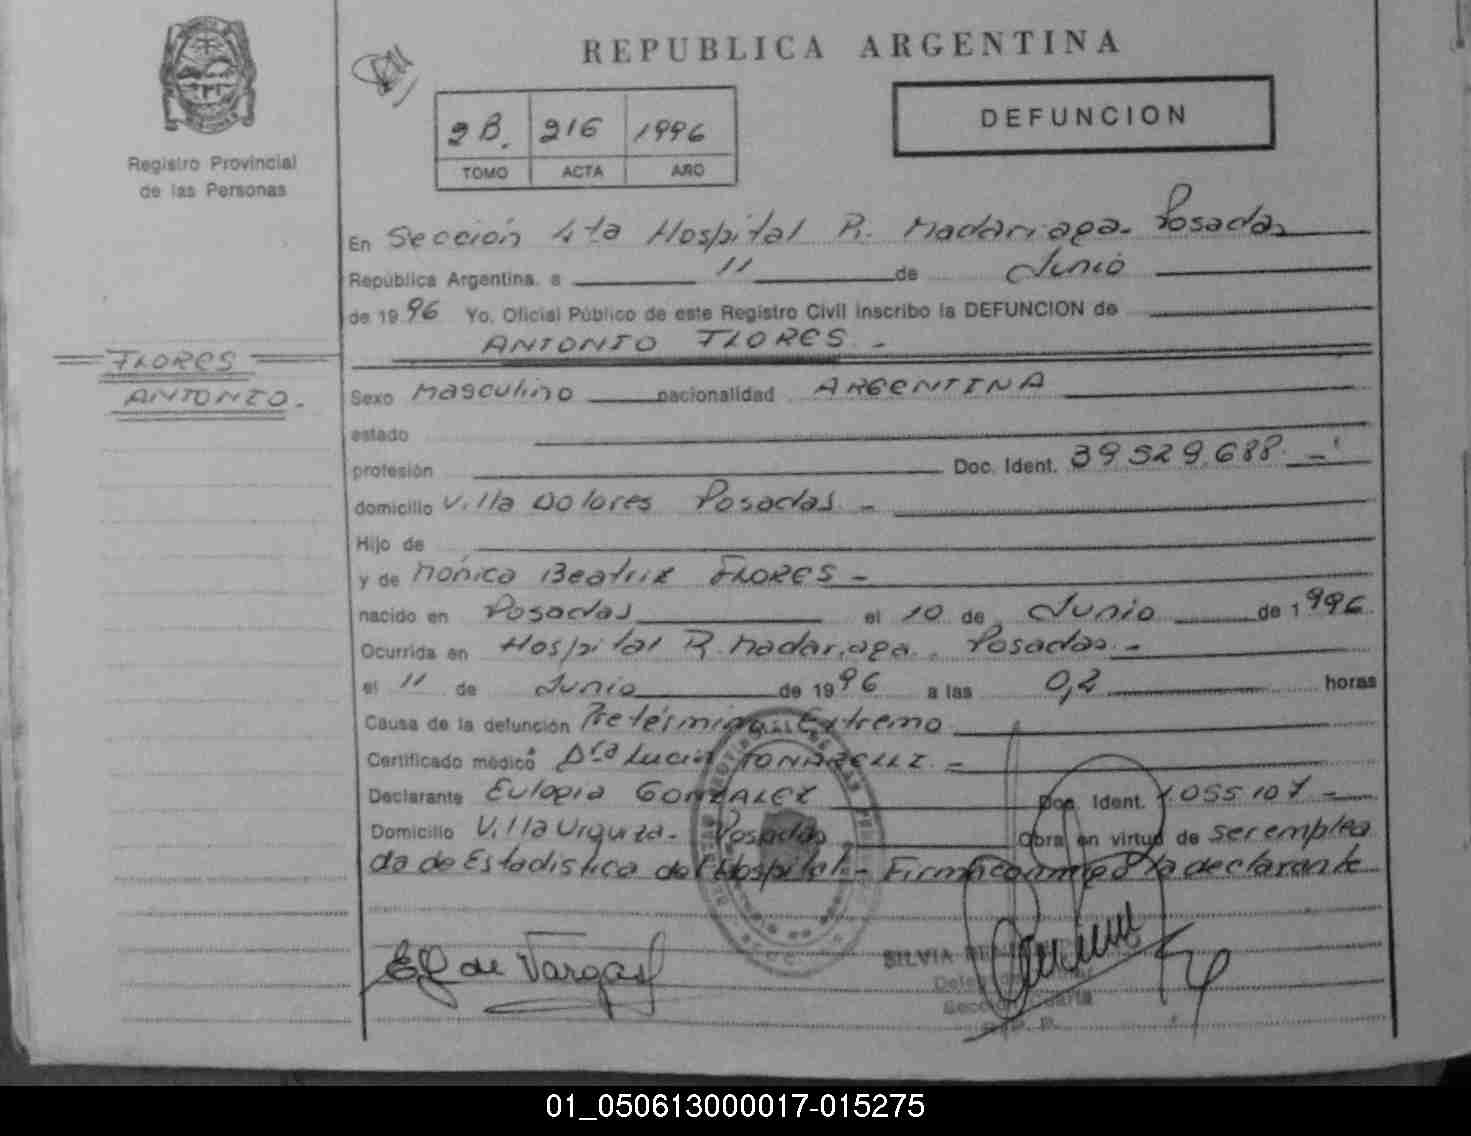 REPUBLICA ARGENTINA
DEFUNCION
Registro Provincial
de las Personas
2B. 216 1996
TOMO ACTA AÑO
En Sección 4ta Hospital R. Madariaga. Posadas
República Argentina. a 11 de Junio
de 1996 Yo. Oficial Público de este Registro Civil inscribo la DEFUNCION de
ANTONIO FLORES -
FLORES
ANTONIO.
Sexo Masculino nacionalidad ARGENTINA
estado
profesión Doc. Ident. 39.529.688 -
domicilio Villa Dolores Posadas -
Hijo de
y de Mónica Beatriz FLORES -
nacido en Posadas el 10 de Junio de 1996.
Ocurrida en Hospital R. Madariaga. Posadas. -
el 11 de Junio de 1996 a las 0,2 horas
Causa de la defunción Pretérmino Extremo
Certificado médico Dra Lucía TONARELLI. -
Declarante Eulogia GONZALEZ Doc. Ident. 1.055107 -
Domicilio Villa Urquiza - Posadas Obra en virtud de ser emplea
da de Estadistica del Hospital - Firma conmigo la declarante
EG de Vargas
SILVIA
Sección Cuarta
01_050613000017-015275